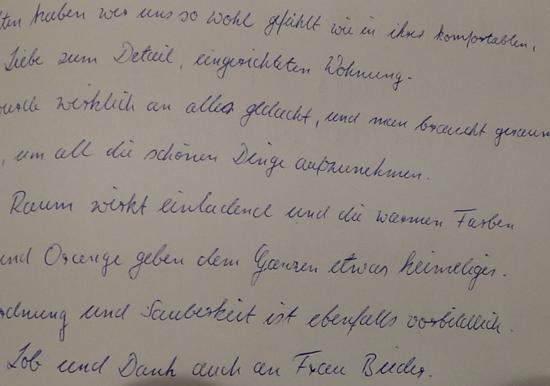 ten haben wir uns so wohl gefühlt wie in ihrer komfortablen,
Liebe zum Detail, eingerichteten Wohnung.
wurde wirklich an alles gedacht, und man braucht genau
, um all die schönen Dinge aufzunehmen.
Raum wirkt einladend und die warmen Farben
und Orange geben dem Ganzen etwas heimeliges.
rdnung und Sauberkeit ist ebenfalls vorbildlich.
Lob und Dank auch an Frau